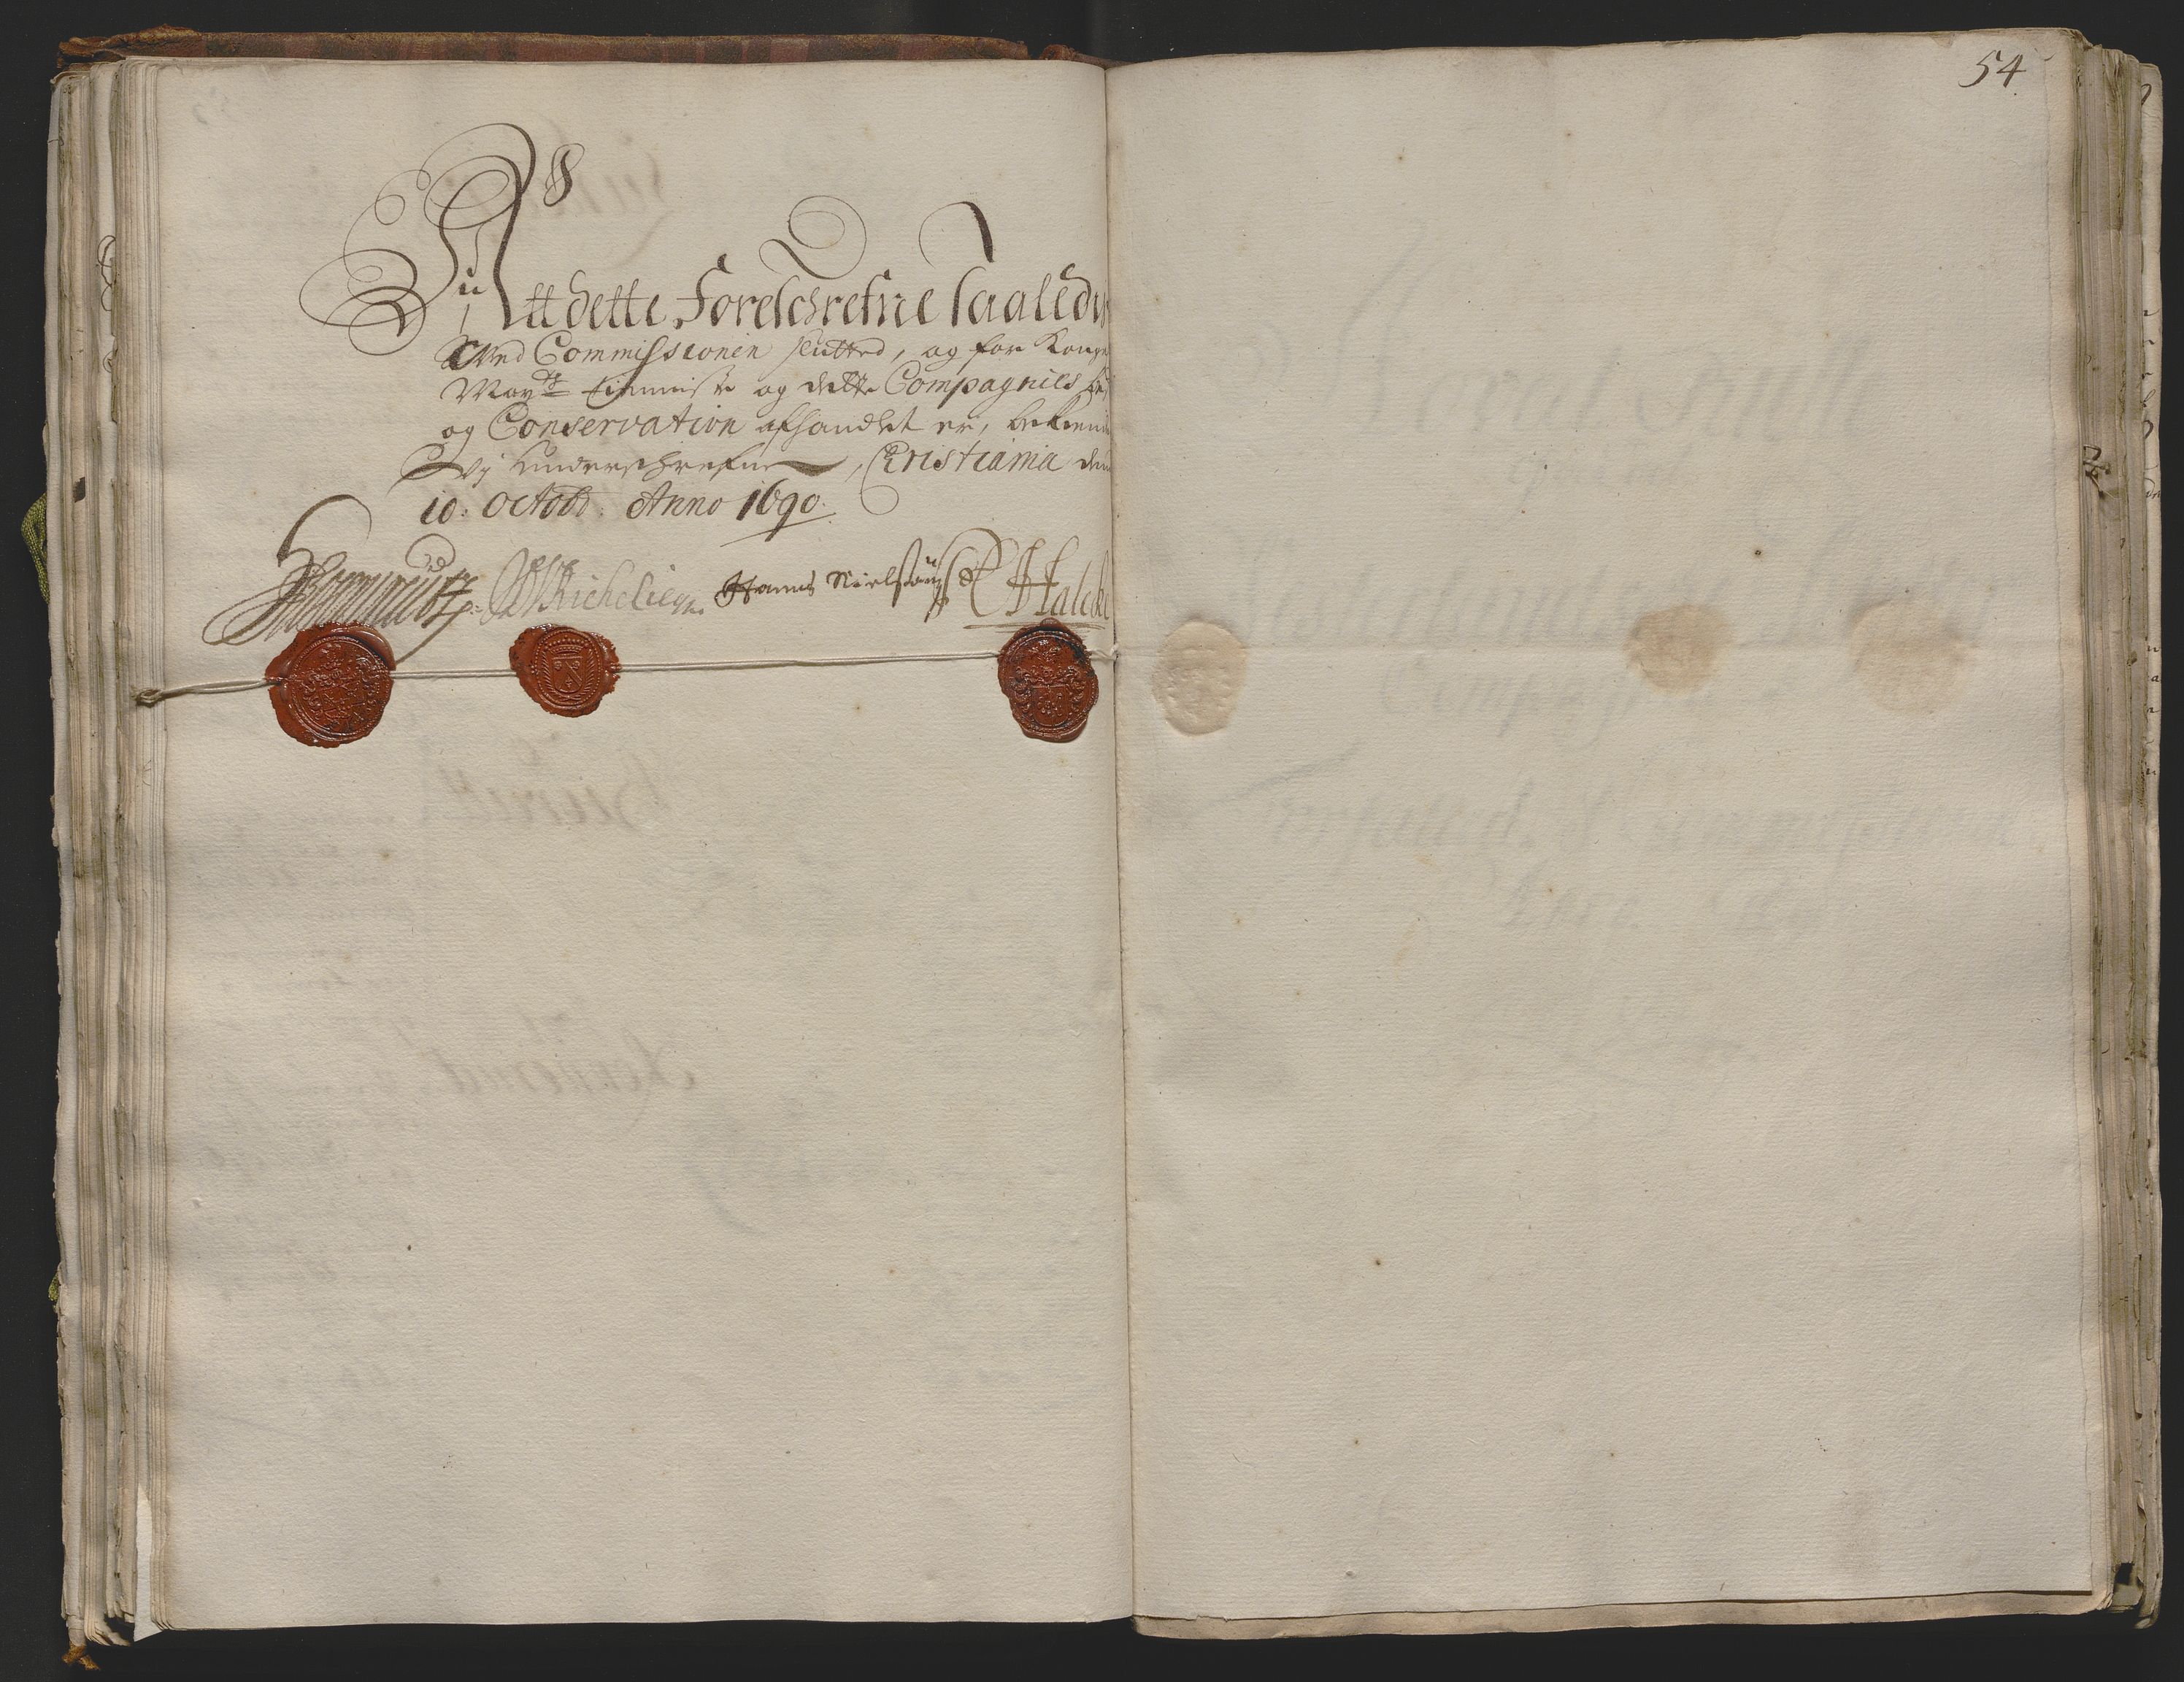 54
Att dette Foreschrefne saaledis
Ved Commissionen slutted, og for Konge
Mayts og dette Compagnies
og Conservation afhandlet er, bekiende
Vj underschrefne, Cristiania den
10: Octobr: Anno 1690.
Richelieu Hanns Nielsøn